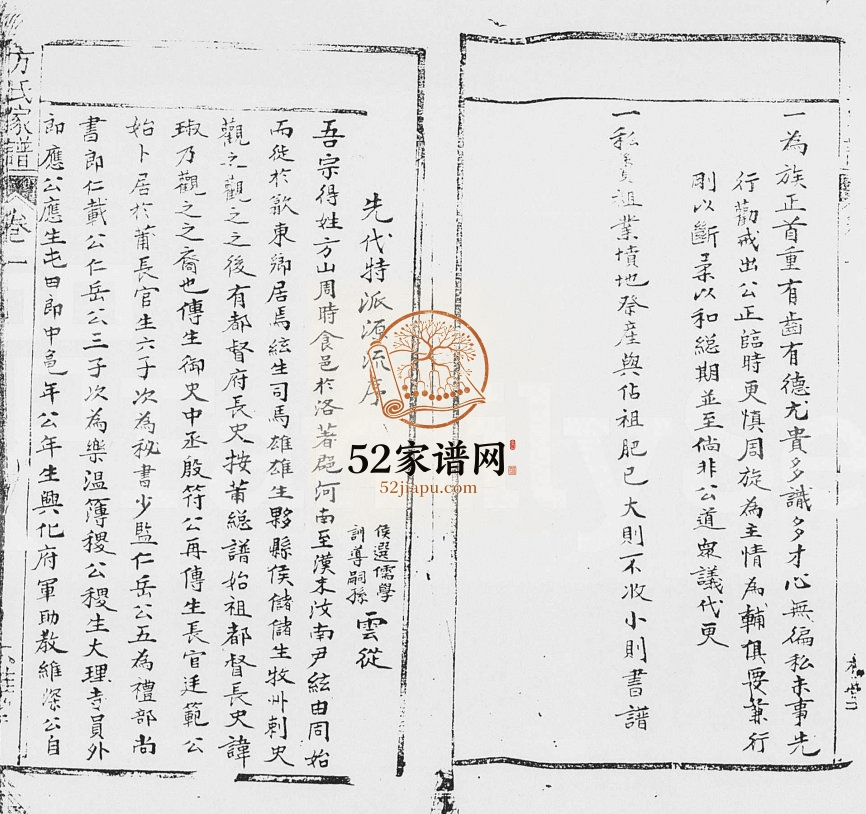 一為族正首重有齒有德尤貴多識多才心無徧私未事先
行勸戒出公正臨時更慎周旋為主情為輔俱要兼行
剛以斷柔以和総期並至倘非公道衆議代更
一私賣祖業墳地祭產與佔祖肥已大則不收小則書譜
先代特派源流序
候選儒學
訓導嗣孫
雲從
吾宗得姓方山周時食邑於洛著郡河南至漢末汝南尹絃由周始
而徙於歙東鄉居焉絃生司馬雄雄生夥縣侯儲儲生牧州刺史
觀之觀之之後有都督府長史按莆総譜始祖都督長史諱
琡乃觀之之裔也傳生御史中丞殷符公再傳生長官廷範公
始卜居於莆長官生六子次為秘書少監仁岳公五為禮部尚
書郎仁載公仁岳公三子次為樂溫簿稷公稷生大理寺員外
郎應公應生屯田郎中龜年公年生興化府軍助教維深公自
方氏家譜
卷一
52家谱网
52jiapu.com